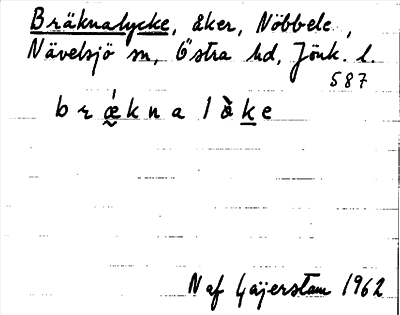 Bräknalycke, åker, Nöbbele,
Nävelsjö sn, Östra hd, Jönk. l.
587
brǽ̰knalò̀ḵe
N af Gäijerstam 1962